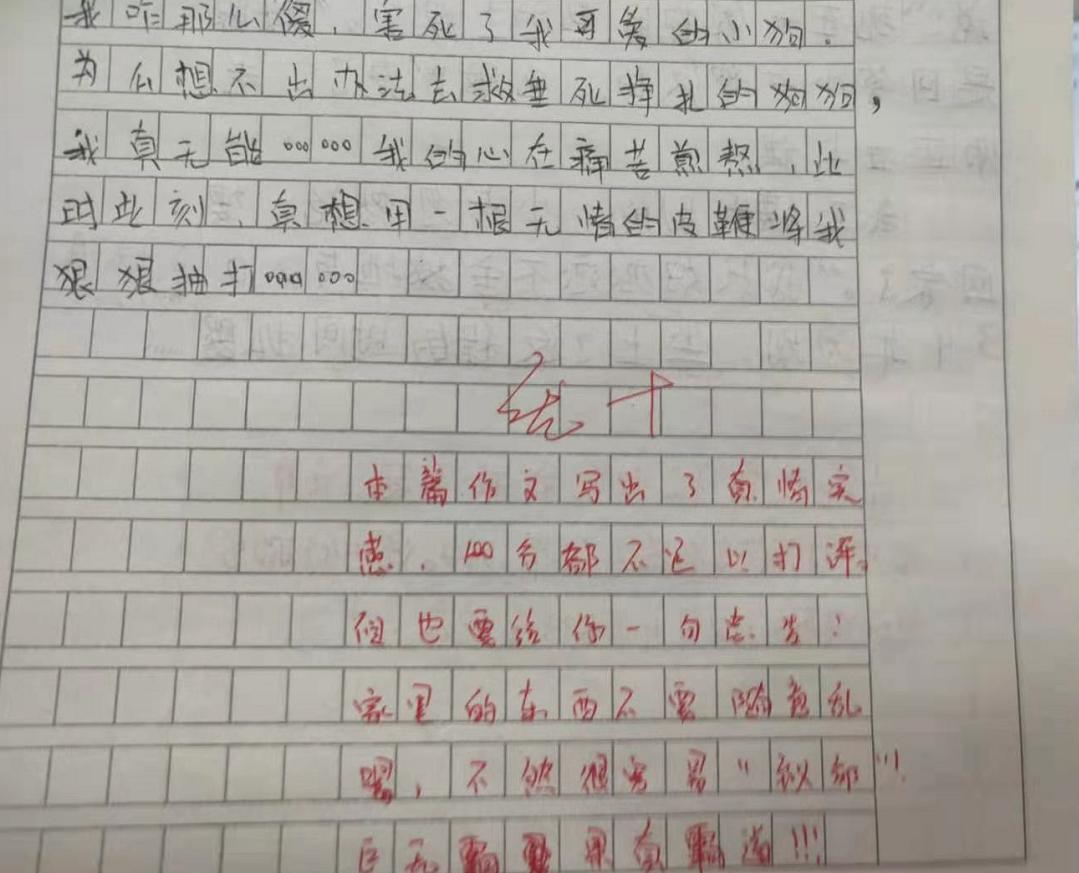 我咋那么傻，害死了我可爱的小狗。
为么想不出办法去救垂死挣扎的狗狗，
我真无能……我的心在痛苦煎熬，此
时此刻，真想用一根无情的皮鞭将我
狠狠抽打……
优十
本篇作文写出了真情实
感，100分都不足以打评。
但也要给你一句忠告：
家里的东西不要随意乱
喂，不然很容易"
巨无霸 果真霸道!!!